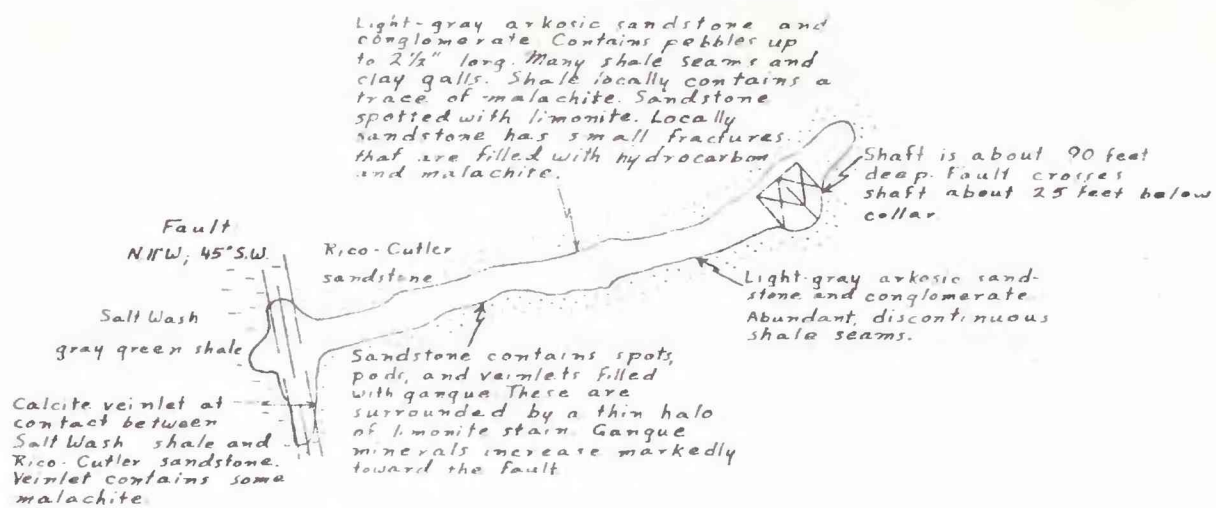 Light-gray arkosic sandstone and
conglomerate. Contains pebbles up
to 2½" long. Many shale seams and
clay galls. Shale locally contains a
trace of malachite. Sandstone
spotted with limonite. Locally
sandstone has small fractures
that are filled with hydrocarbon
and malachite.
Shaft is about 90 feet
deep. Fault crosses
shaft about 25 feet below
collar
Fault
45° S.W.
Rico-Cutler
sandstone
Light-gray arkosic sand-
stone and conglomerate
Abundant, discontinuous
shale seams.
Salt Wash
gray green shale
Sandstone contains spots,
pods, and veinlets filled
with gangue These are
surrounded by a thin halo
of limonite stain Gangue
minerals increase markedly
toward the fault
Calcite veinlet at
contact between
Salt Wash shale and
Rico-Cutler sandstone.
Veinlet contains some
malachite